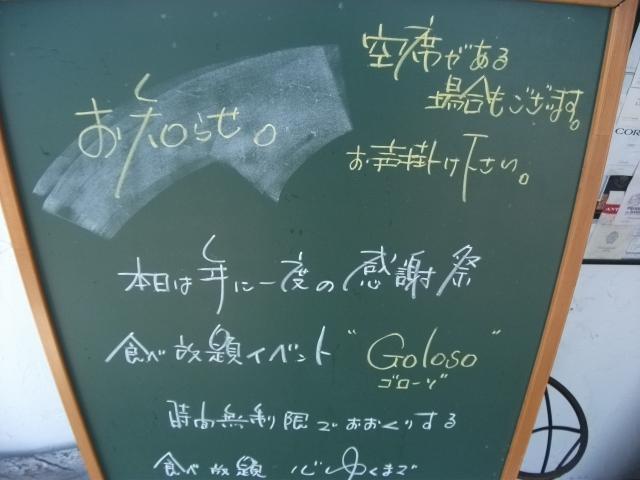 お知らせ。
空席がある
場合もございます。
お声掛け下さい。
本日は年に一度の感謝祭
食べ放題イベント "Goloso"
ゴローゾ
時間無制限でおおくりする
食べ放題 心ゆくまで
COR